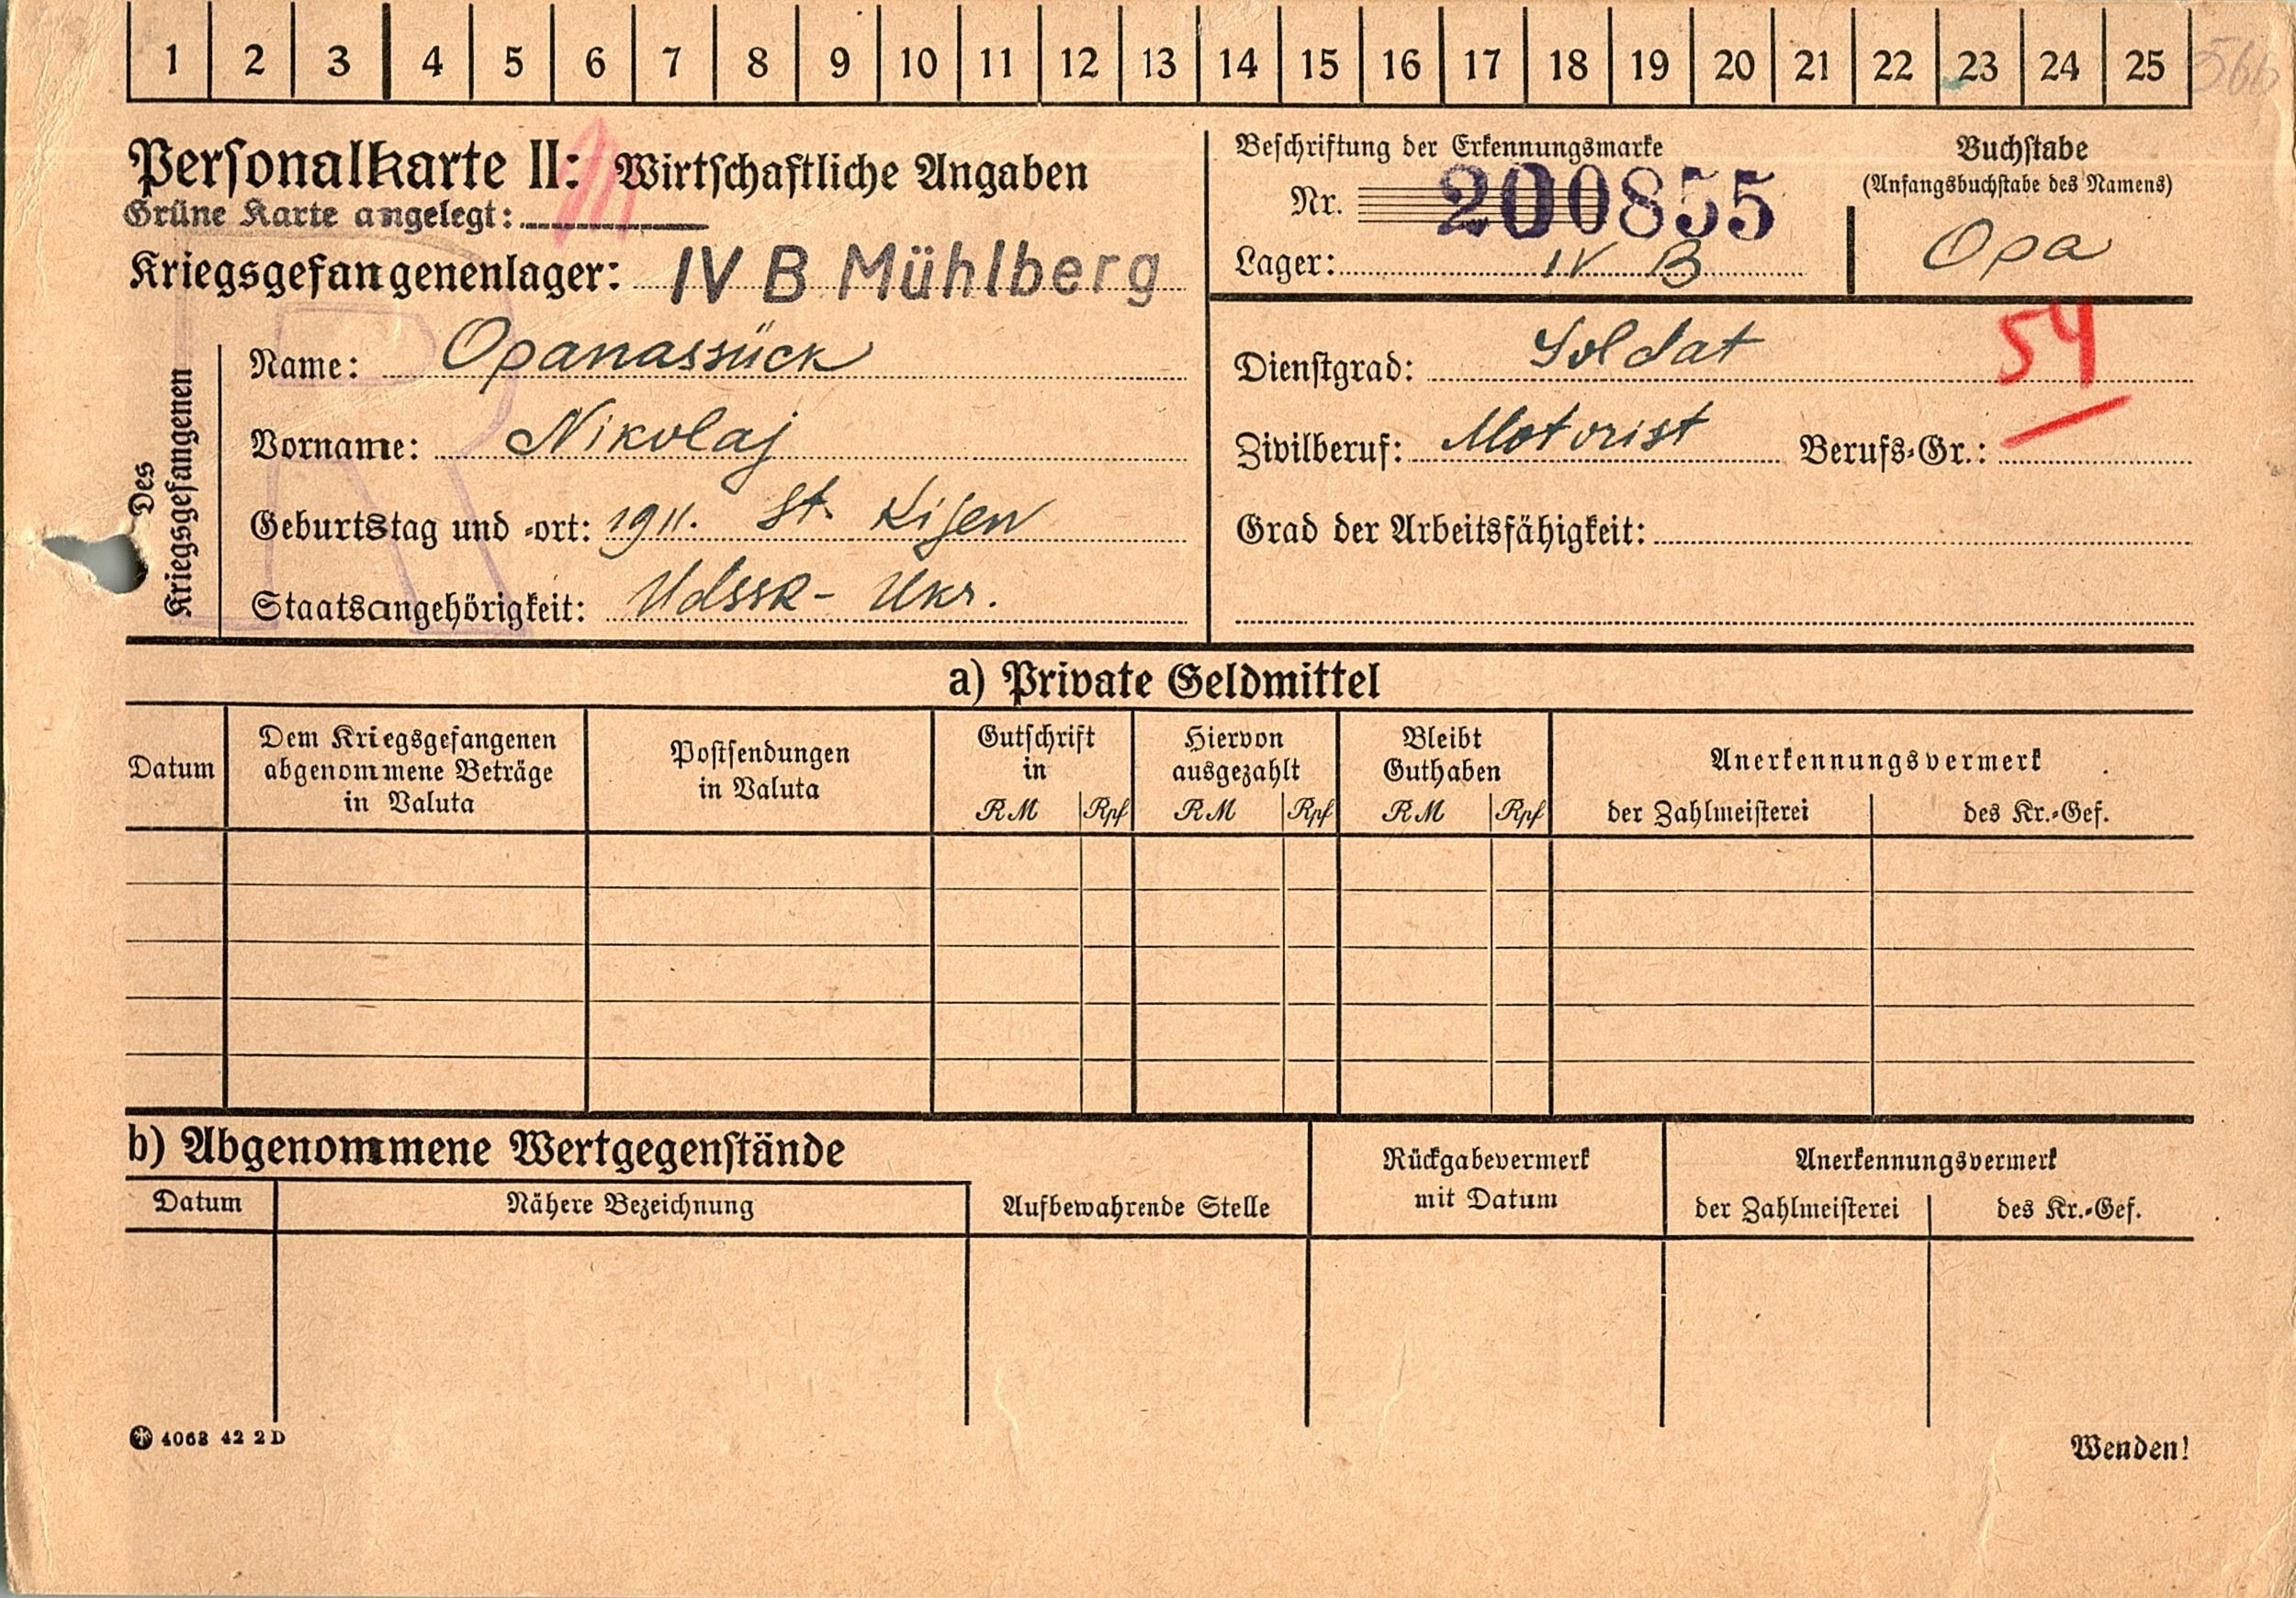 1 2 3 4 5 6 7 8 9 10 11 12 13 14 15 16 17 18 19 20 21 22 23 24 25
Personalkarte II: Wirtschaftliche Angaben
Grüne Karte angelegt:
Kriegsgefangenenlager: IV B Mühlberg
Beschriftung der Erkennungsmarke
Nr. 200855
Lager: IV B
Buchstabe
(Anfangsbuchstabe des Namens)
Opa
Des Kriegsgefangenen
Name: Opanassück
Vorname: Nikolaj
Geburtstag und -ort: 1911. St. Kijen
Staatsangehörigkeit: UdSSR- Ukr.
Dienstgrad: Soldat
54
Zivilberuf: Motorist Berufs-Gr.:
Grad der Arbeitsfähigkeit:
a) Private Geldmittel
Datum
Dem Kriegsgefangenen
abgenommene Beträge
in Valuta
Postsendungen
in Valuta
Gutschrift
in
RM Rpf
Hiervon
ausgezahlt
RM Rpf
Bleibt
Guthaben
RM Rpf
Anerkennungsvermerk
der Zahlmeisterei des Kr.-Gef.
b) Abgenommene Wertgegenstände
Datum Nähere Bezeichnung Aufbewahrende Stelle
Rückgabevermerk
mit Datum
Anerkennungsvermerk
der Zahlmeisterei des Kr.-Gef.
4063 42 2D
Wenden!